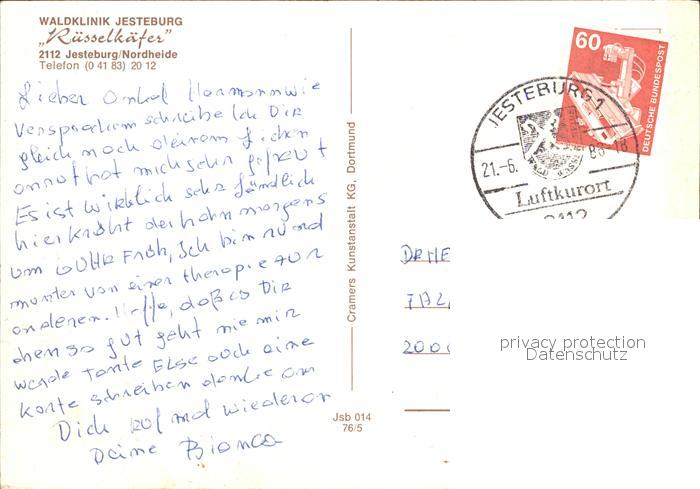 WALDKLINIK JESTEBURG
„Rüsselkäfer"
2112 Jesteburg/Nordheide
Telefon (0 41 83) 20 12
Lieber Onkel Hermann wie
versprochen schreibe Ich Dir
gleich nach deinem lieben
anruf hat mich sehr gefreut
Es ist wirklich sehr ländlich
hier kräht der hahn morgens
um 6 Uhr Früh, Ich bin rund
munter von einer therapie zur
anderen. Hoffe, daß es Dir
eben so gut geht wie mir
werde Tante Else auch eine
Karte schreiben denke an
Dich ruf mal wieder an
Deine Bianca
Cramers Kunstanstalt KG, Dortmund
Jsb 014
76/5
60
DEUTSCHE BUNDESPOST
JESTEBURG 1
21.-6.
88-18
Luftkurort
2112
privacy protection
Datenschutz